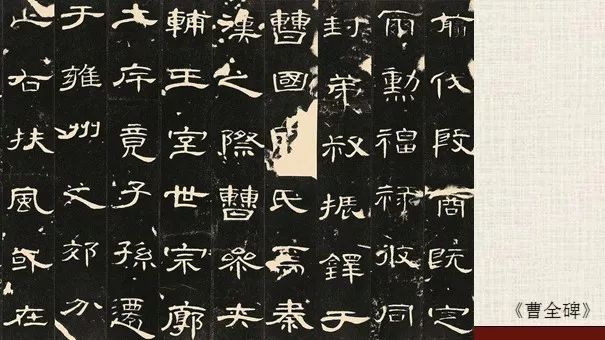 前伐殷商既定
爾勳福祿攸同
封弟叔振鐸于
曹國因氏焉秦
漢之際曹參夾
輔王室世宗廓
土斥竟子孫遷
于雍州之郊分
止右扶風或在
《曹全碑》